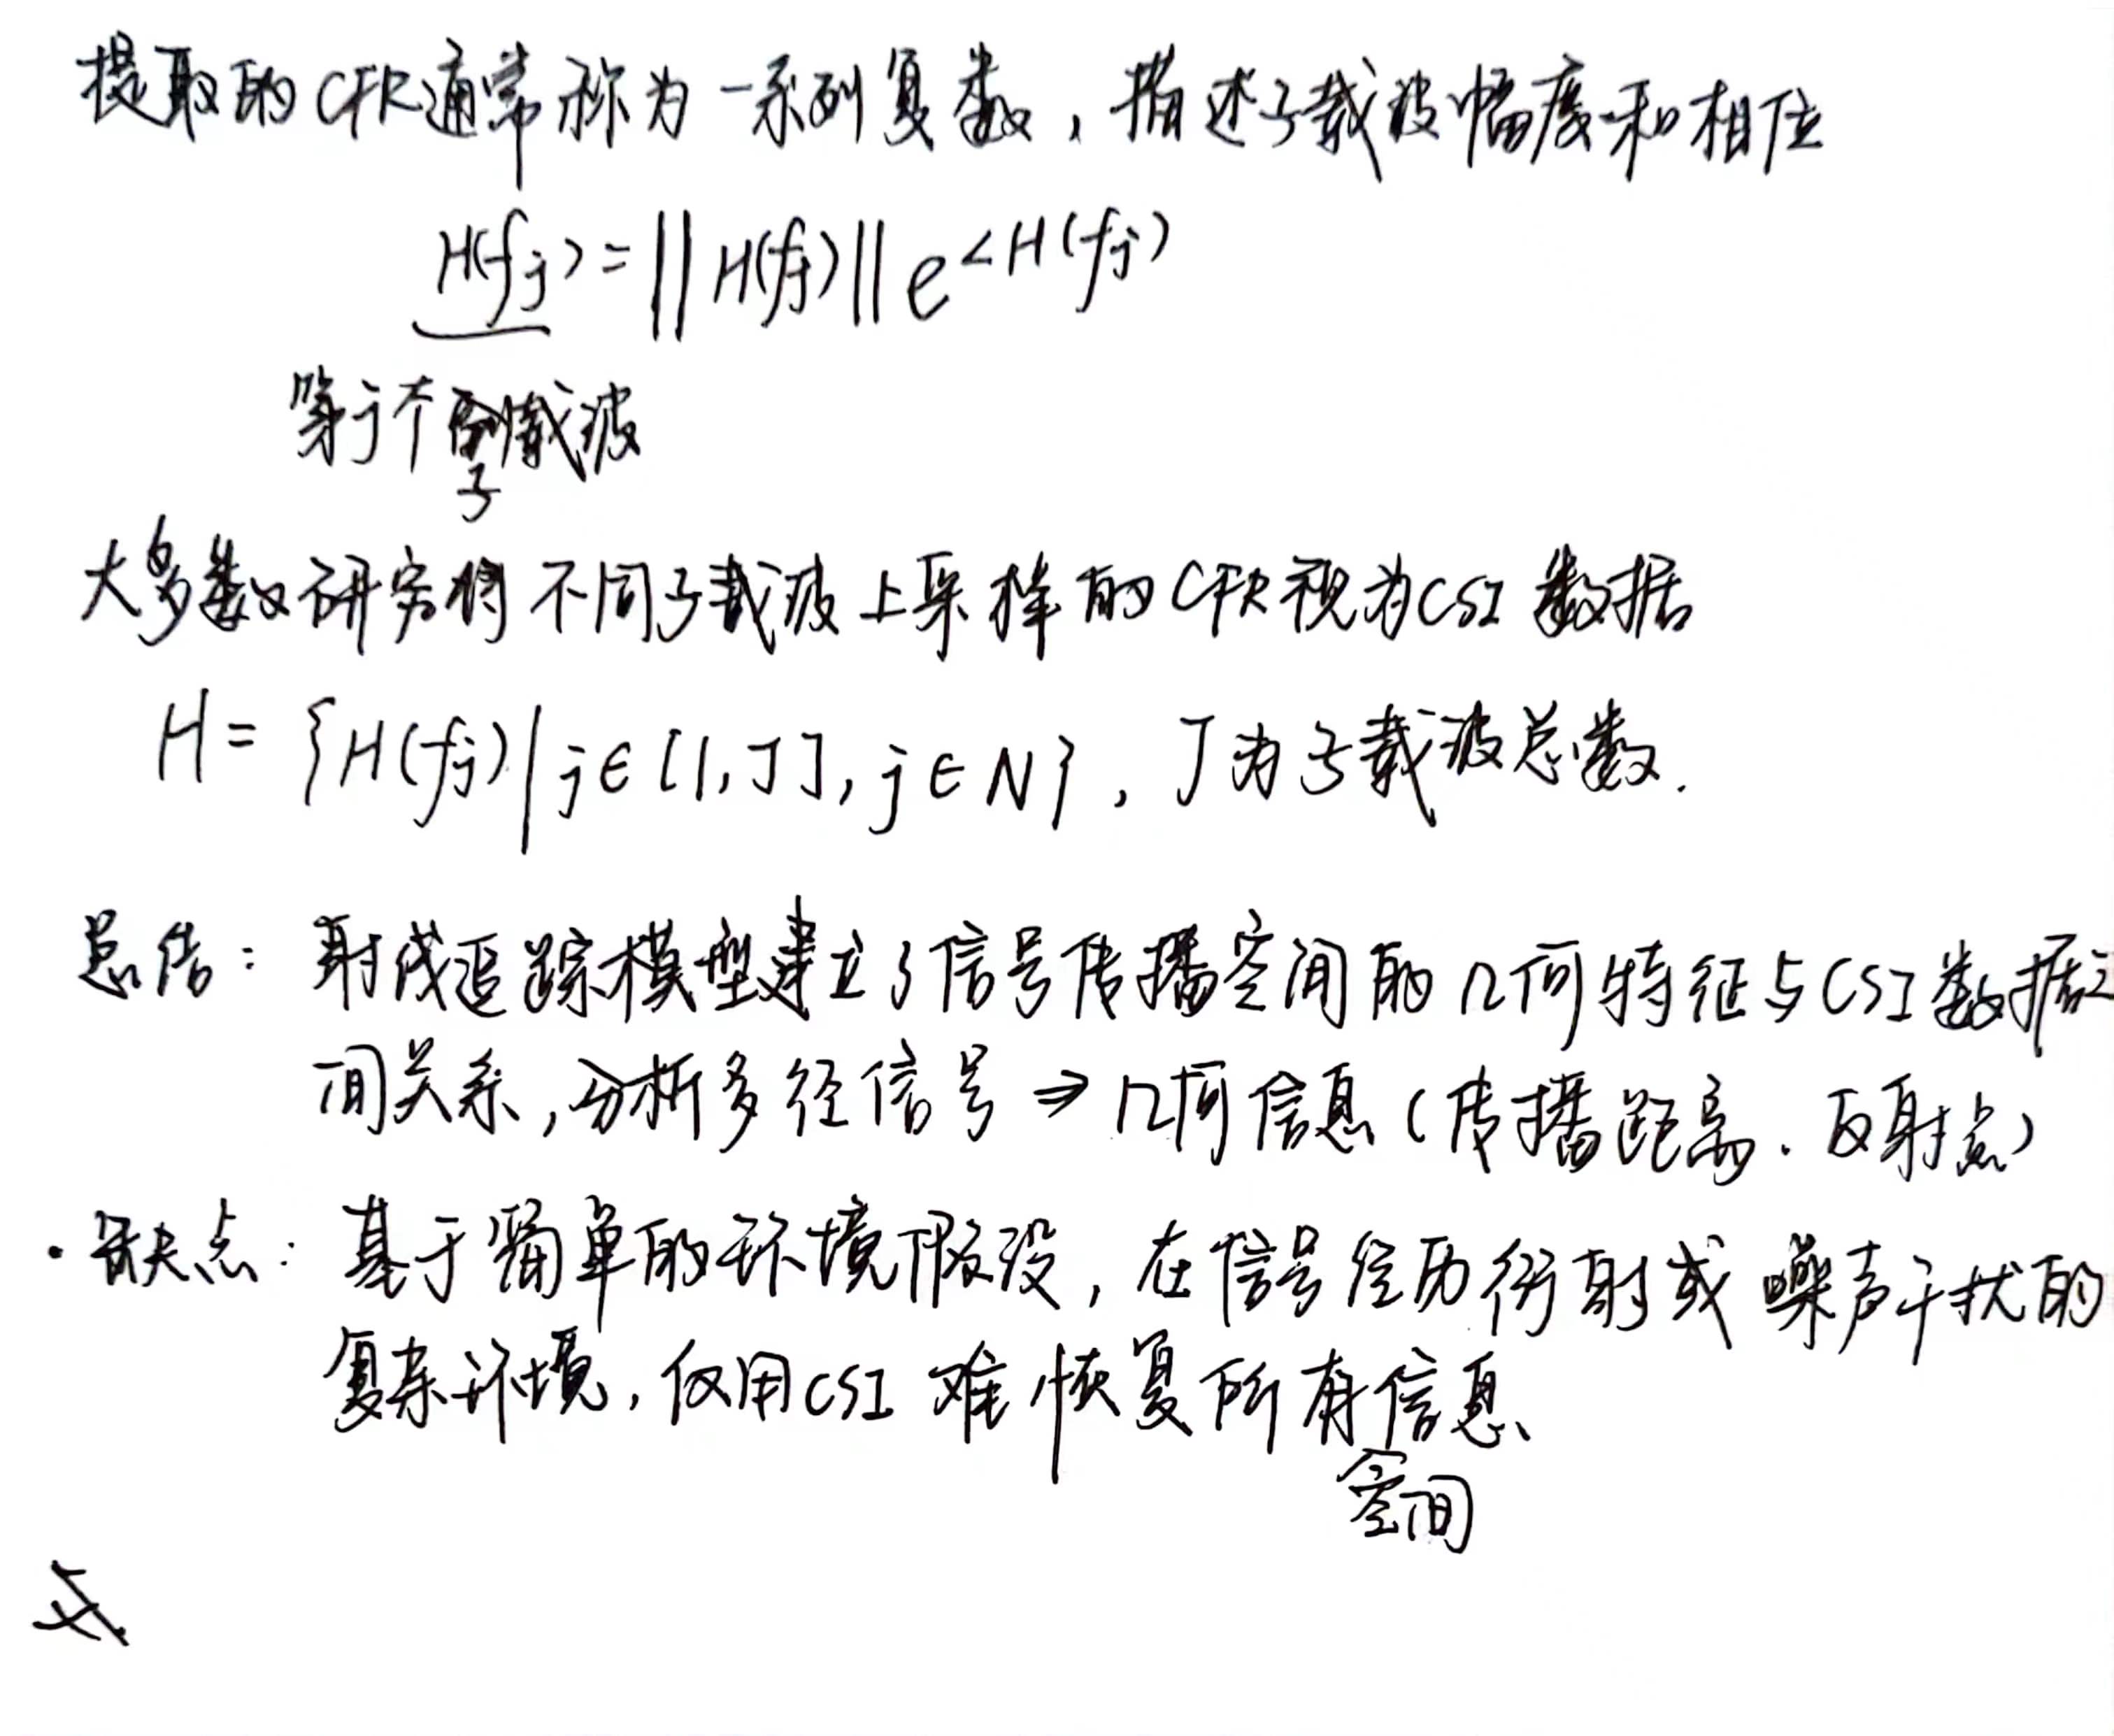 提取的CFR通常称为一系列复数，描述子载波幅度和相位
H(fj) = ||H(fj)|| e^∠H(fj)
第j个子载波
大多数研究将不同子载波上采样的CFR视为CSI数据
H = {H(fj) | j∈[1,J], j∈N}，J为子载波总数.
总结：射线追踪模型建立了信号传播空间的几何特征与CSI数据之
间关系，分析多径信号⇒几何信息（传播距离、反射点）
·缺点：基于简单的环境假设，在信号经历衍射或噪声干扰的
复杂环境，仅用CSI难恢复所有信息
空间